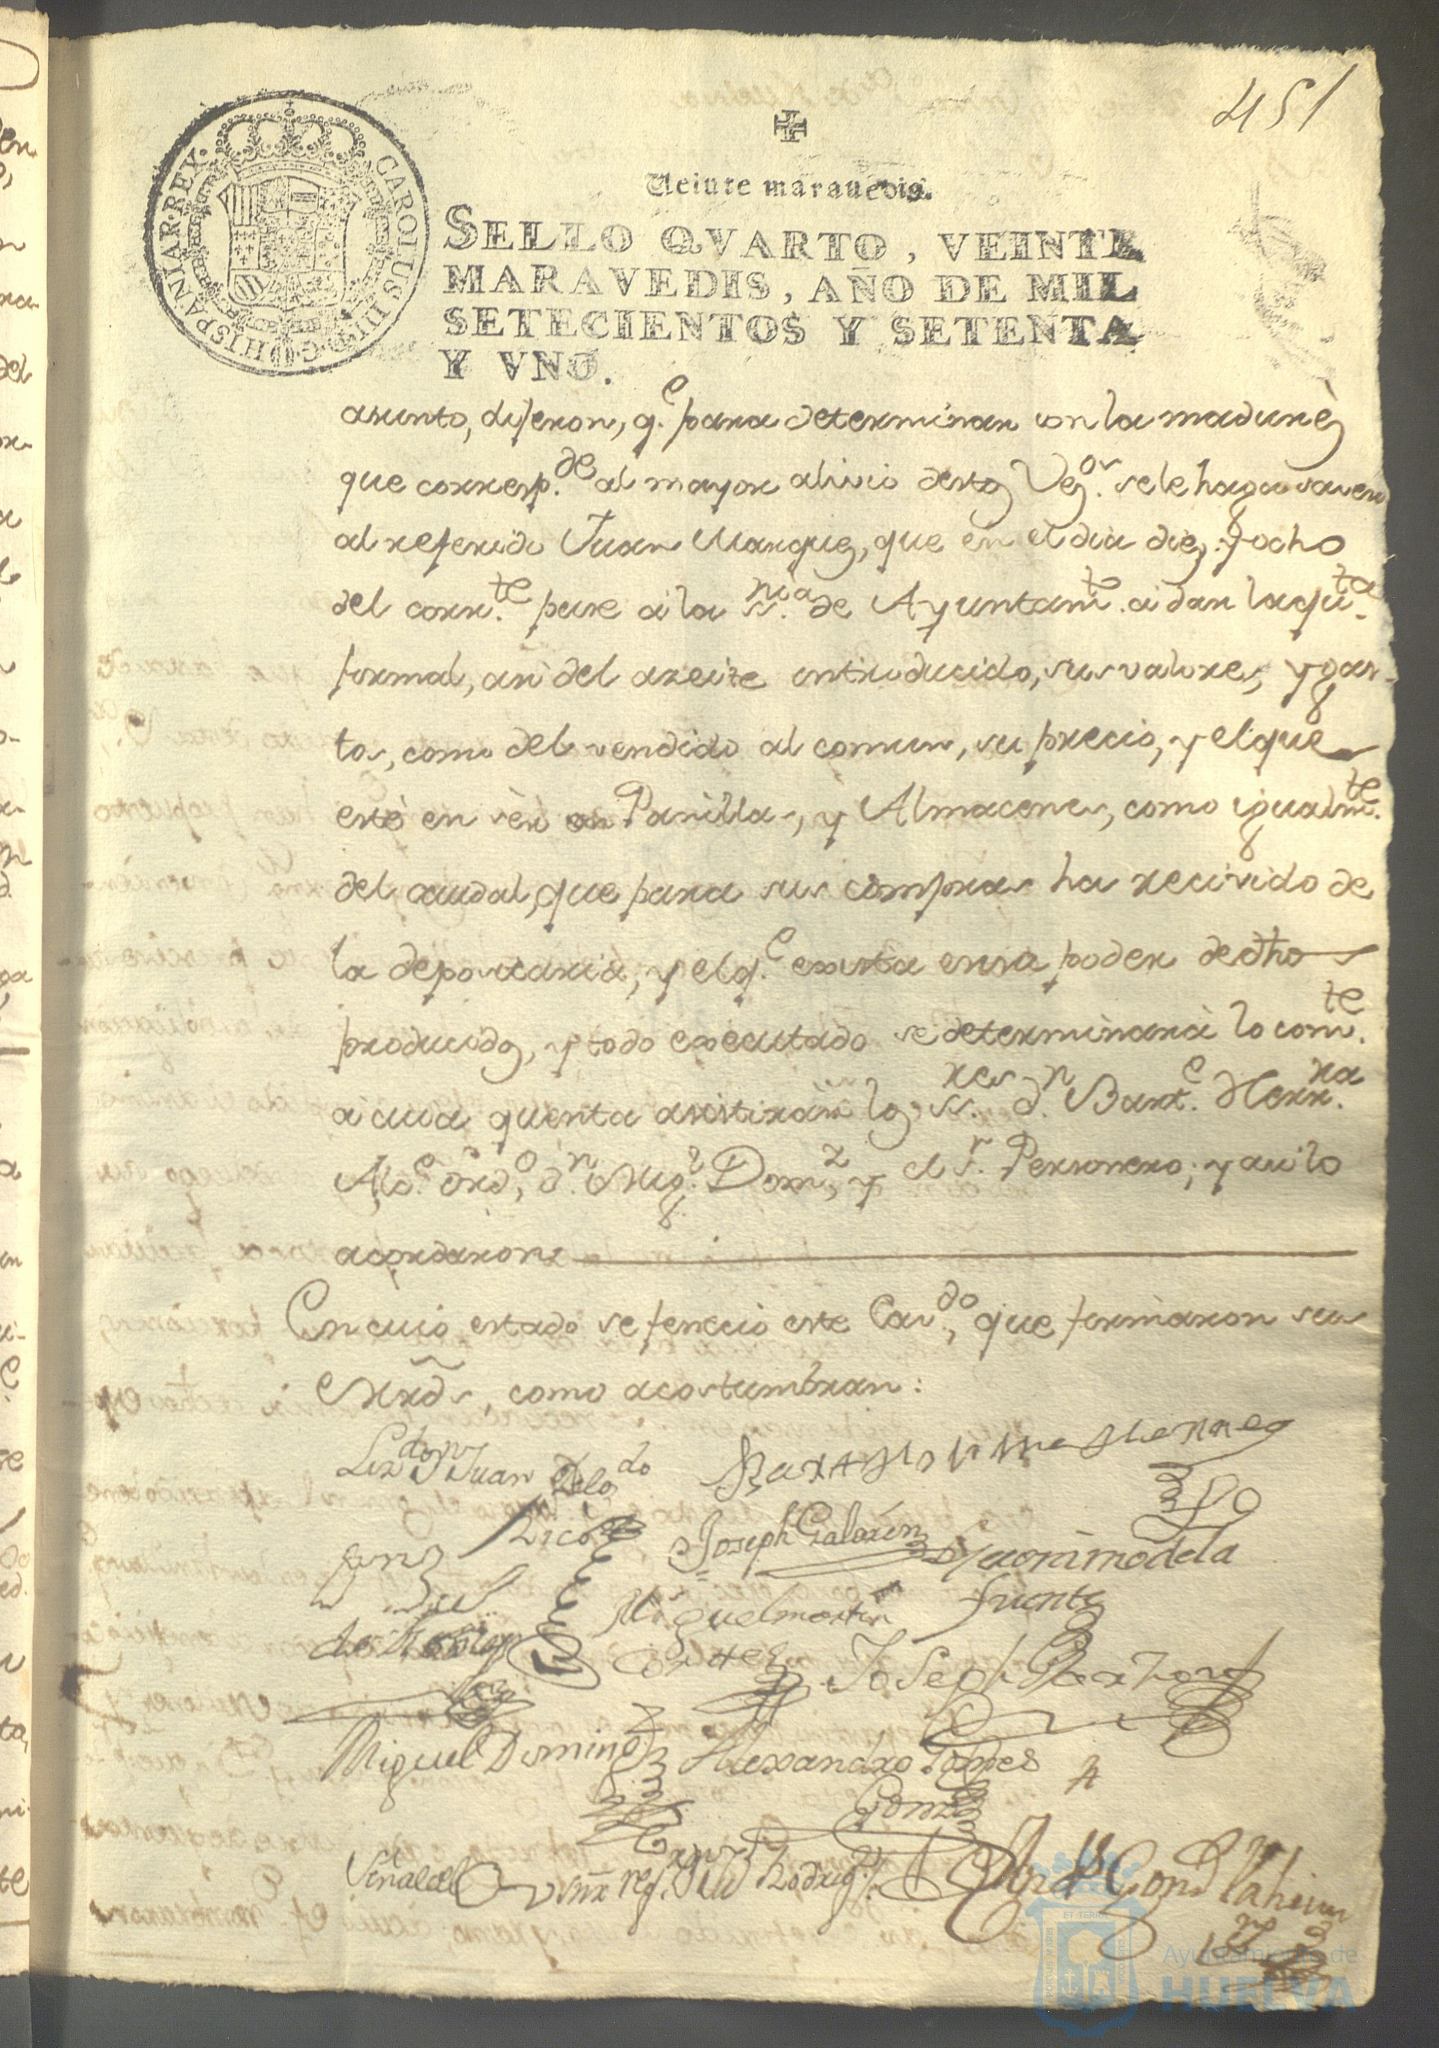 451
CAROLUS III D G HISPANIAR REX
Veinte marauedis.
SELLO QVARTO, VEINTE
MARAVEDIS, AÑO DE MIL
SETECIENTOS Y SETENTA
Y VNO.
asunto, dijeron, q.e para determinar con la madurèz
que corresp.de al mayor alivio destos Vez.os se le haga saver
al referido Juan Marquez, que en el dia diez y ocho
del corr.te pase a la ss.nia de Ayuntam.to a dar la qu.ta
formal, asi del azeite introducido, sus valores, y gas-
tos, como del vendido al comun, su precio, y el que
estè en sèr en Panillas, y Almacenes, como igualm.te
del caudal, que para sus compras ha recivido de
la depositaria, y el q.e exista en su poder de dho
producido, y todo executado se determinarà lo com.te
a cuia quenta asistiràn los ss.res d.n Bart.e Herr.ra
Alc.e ord.o, d.n Mig.l Dom.z, y el s.r Personero; y asi lo
acordaron
En cuio estado se feneció este Cav.do, que firmaron sus
Mrds, como acostumbran:
Lizdo Dn Juan Delgdo
Rico
Bartholome Herrera
Joseph Galarin
Geronimo de la
fuente
Miguel martin
Cortes
Joseph
Miguel Doming
Alexandro Torres
Gomz
Señal del reg.r Rodrig.z
Ayuntamiento de
HUELVA